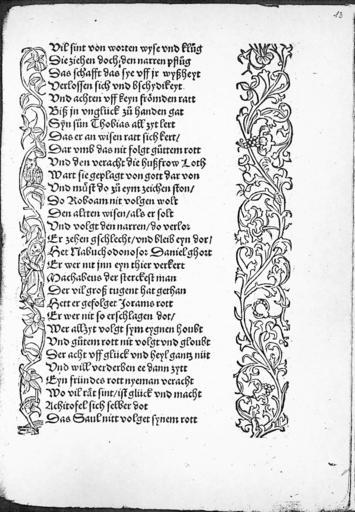 13
Vil sint von worten wyse vnd klůg
Die ziehen doch, den narren pflůg
Das schafft das sye vff jr wyßheyt
Verlossen sich vnd bschydikeyt
Vnd achten vff keyn frömden ratt
Biß jn vnglück zů handen gat
Syn sün Thobias all zyt lert
Das er an wisen ratt sich kert/
Dar vmb das nit folgt gůttem rott
Vnd den veracht die hußfrow Loth
Wart sie geplagt von gott dar von
Vnd můst do zů eym zeichen ston/
Do Roboam nit volgen wolt
Den altten wisen/ als er solt
Vnd volgt den narren/ do verlor
Er zehen gschlecht/ vnd bleib eyn dor/
Het Nabuchodonosor Daniel ghort
Er wer nit jnn eyn thier verkert
Machabeus der sterckest man
Der vil groß tugent hat gethan
Hett er gefolget Jorams rott
Er wer nit so erschlagen dot/
Wer allzyt volgt sym eygnen houbt
Vnd gůtem rott nit volgt vnd gloubt
Der acht vff glück vnd heyl gantz nüt
Vnd will verderben ee dann zytt
Eyn fründes rott nyeman veracht
Wo vil rät sint/ ist glück vnd macht
Achitofel sich selber dot
Das Saul nitt volget synem rott